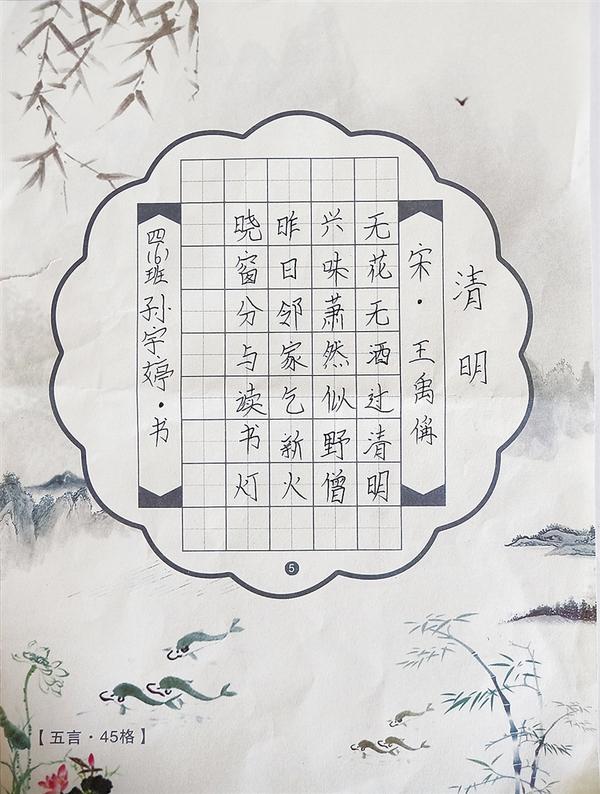 清明
宋·王禹偁
无花无酒过清明
兴味萧然似野僧
昨日邻家乞新火
晓窗分与读书灯
四(6)班 孙宇婷·书
5
【五言·45格】